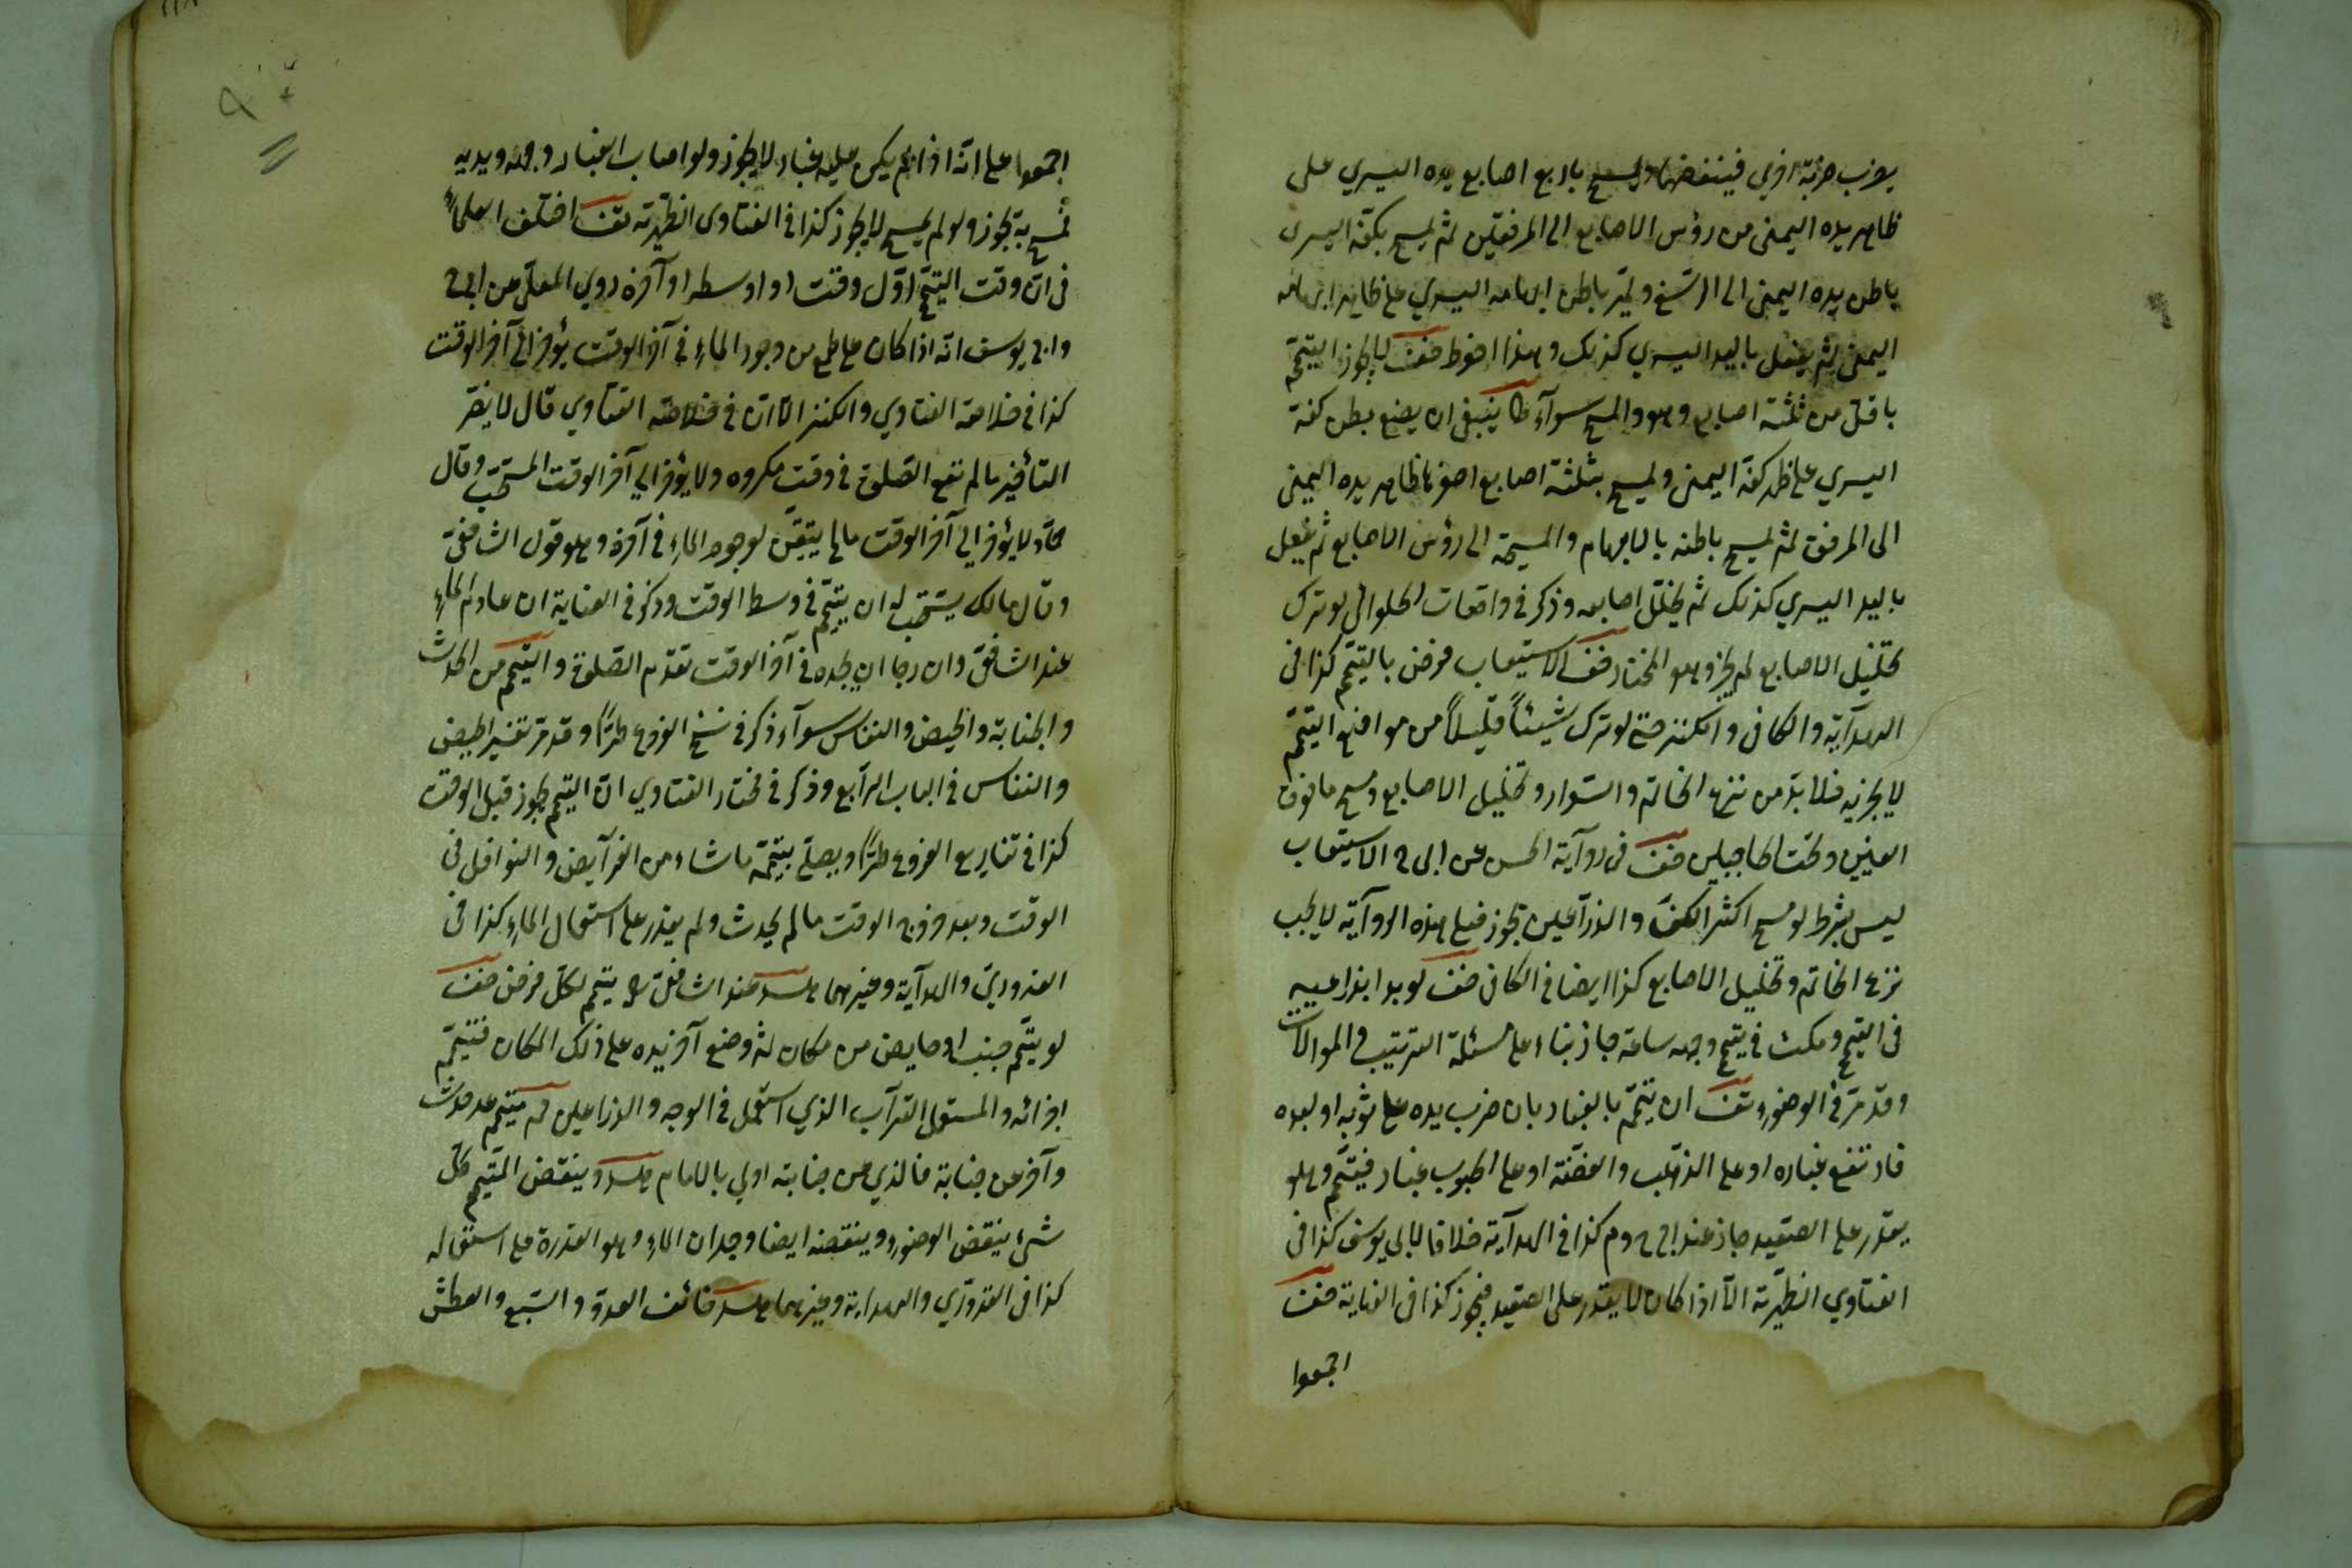 يضرب ضربة اخرى فينفضها ويمسح باربع اصابع يده اليسري على
ظاهر يده اليمنى من رؤس الاصابع الى المرفقين ثم يمسح بكفه اليسرى
باطن يده اليمنى الى الرسغ ويمر باطن ابهامه اليسري على ظاهر ابهامه
اليمنى ثم يفعل باليد اليسري كذلك وهذا احوط صف لا يجوز التيمّم
باقل من ثلثة اصابع وهو والمسح سوآء ينبغى ان يضع بطن كفه
اليسري على ظهر كفه اليمنى ويمسح بثلثة اصابع اصغرها ظاهر يده اليمنى
الى المرفق ثم يمسح باطنه بالابهام والمسبحة الى رؤس الاصابع ثم يفعل
باليد اليسري كذلك ثم يخلل اصابعه وذكر فى واقعات الحلوائى لو ترك
تخليل الاصابع لم يجز وهو المختار صف الاستيعاب فرض بالتيمّم كذا فى
الهدآية والكافى والكنز حتى لو ترك شيئاً قليلاً من مواضع التيمّم
لا يجزيه فلا بد من نزع الخاتم والسّوار وتخليل الاصابع ومسح ما فوق
العينين وتحت الحاجبين صف فى روآية الحسن عن ابى ح الاستيعاب
ليس بشرط لو مسح اكثر الكف والذرآعين يجوز فعلى هذه الروآية لا يجب
نزع الخاتم وتخليل الاصابع كذا ايضا فى الكافى صف لو بدا بذراعيه
فى التيمم ومكث فى تيمم وجهه ساعة جاز بناء على مسئلة الترتيب والموالات
وقد مرّ فى الوضوء تف ان تيمّم بالغبار بان ضرب يده على ثوبه او لبده
فارتفع غباره او على الذهب والفضّة او على الحبوب غبار فتيمّم وهو
يقدر على الصّعيد جاز عند ابى ح وم كذا فى الهدآية خلافا لابى يوسف كذا فى
الفتاوي الظهيرية الّا اذا كان لا يقدر على الصّعيد فيجوز كذا فى الغاية صف
اجمعوا
اجمعوا على انه اذا لم يكن عليه غبار لا يجوز ولو اصاب الغبار وجهه ويديه
فمسح به يجوز ولو لم يمسح لا يجوز كذا فى الفتاوى الظهيرية تف اختلف العلماء
فى ان وقت التيمّم اوّل وقت او اوسطه او آخره روي المعلى عن ابى ح
وابى يوسف انه اذا كان على طمع من وجود الماء فى آخر الوقت يؤخر الى آخر الوقت
كذا فى خلاصة الفتاوي والكنز الا ان فى خلاصة الفتاوي قال لا يضر
التأخير ما لم تقع الصّلوة فى وقت مكروه ولا يؤخر الى آخر الوقت المستحب وقال
حمّاد لا يؤخر الى آخر الوقت ما لم يتيقن لوجود الماء فى آخره وهو قول الشافعى
وقال مالك يستحب له ان يتيمّم فى وسط الوقت وذكر فى العناية ان عادم الماء
عند الشافعى وان رجا ان يجده فى آخر الوقت تقدّم الصّلوة والتيمم من الحدث
والجنابة والحيض والنفاس سوآء ذكر فى نسخ الفروع طرّاً وقد مرّ تفسير الحيض
والنفاس فى الباب الرّابع وذكر فى مختار الفتاوي ان التيمم يجوز قبل الوقت
كذا فى تفاريع الفروع طرّاً ويصلّى بتيمّمه ما شاء من الفرآيض والنوافل فى
الوقت وبعد خروج الوقت ما لم يحدث ولم يقدر على استعمال الماء كذا فى
القدوريّ والهدآية وغيرهما عند الشافعى رح يتيمم لكل فرض صف
لو تيمّم جنب او حايض من مكان ثم وضع آخر يده على ذلك المكان فتيمّم
اجزائه والمستعمل التراب الذي استعمل فى الوجه والذراعين تيمم عن حدث
وآخر عن جنابة فالذي عن جنابته اولى بالامام وينقض التيمم كل
شئ ينقض الوضوء وينقضه ايضا وجدان الماء وهو القدرة على استعماله
كذا فى القدوري والهداية وغيرهما خائف العدوّ والسّبع والعطش